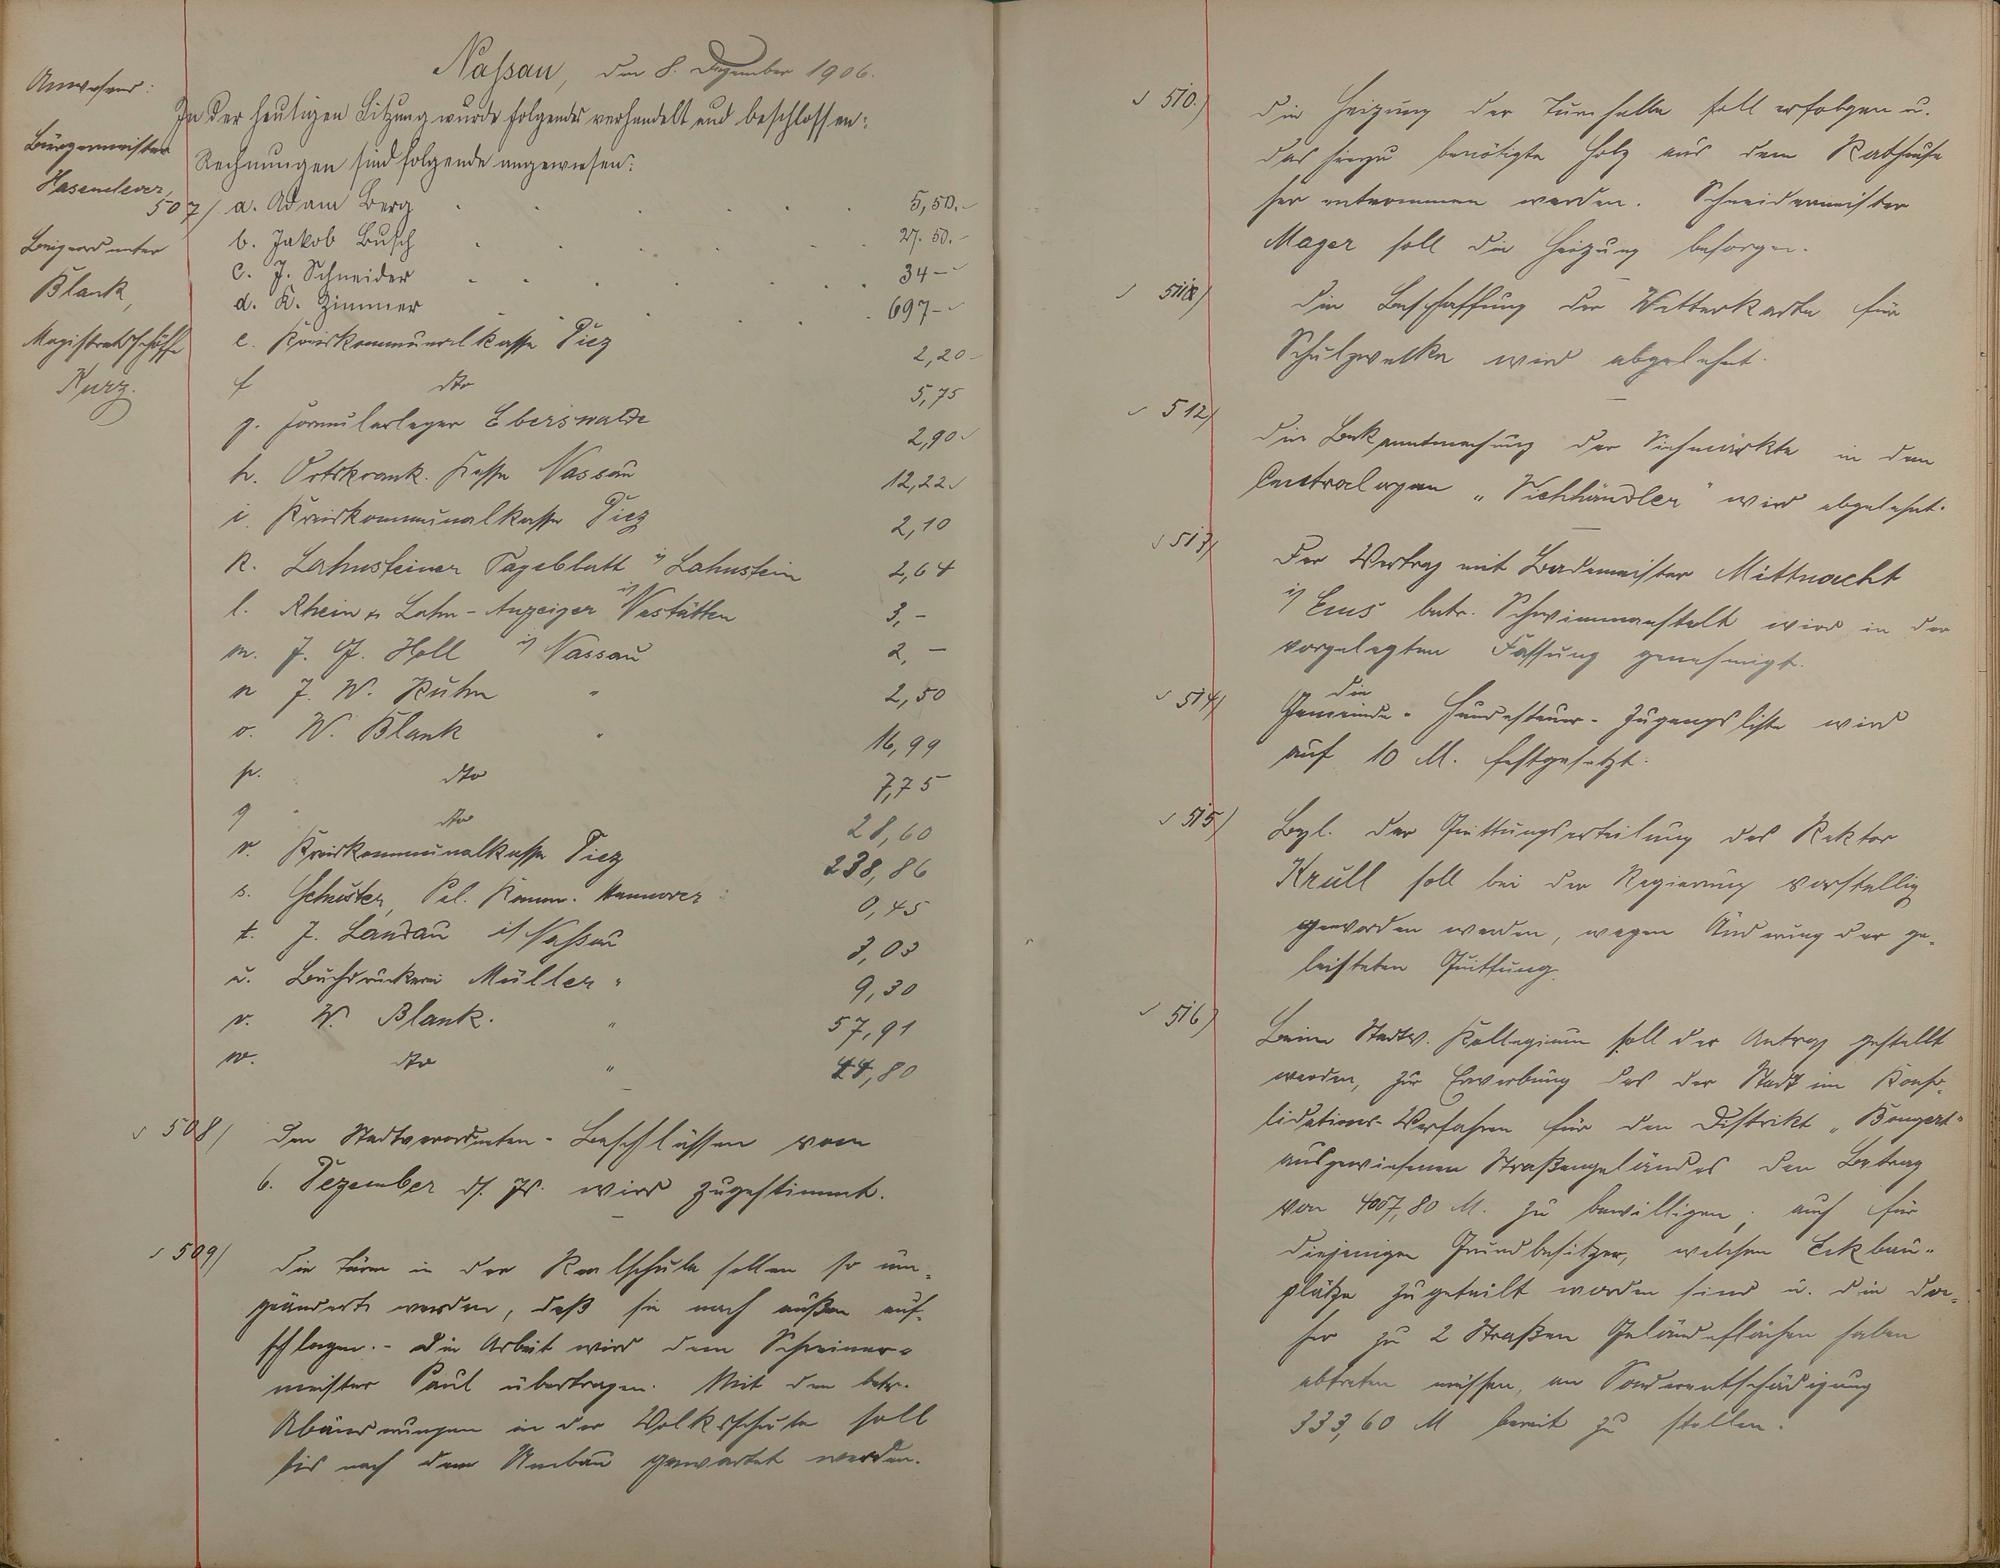 Nassau, den 8. Dezember 1906.
Anwesend:
Bürgermeister
Hasenclever,
Beigeordneter
Blank,
Magistratsschöffe
Kurz.
In der heutigen Sitzung wurde folgendes verhandelt und beschlossen:
Rechnungen sind folgende angewiesen:
507/ a. Adam Berg 5,50.-
b. Jakob Busch 27.50.-
c. J. Schneider 34-
d. K. Zimmer 697-
e. Kreiskommunalkasse Diez 2,20
f dto 5,75
g. Formularlager Eberswalde 2,90
h. Ortskrank. Kasse Nassau 12,22
i. Kreiskommunalkasse Diez 2,10
k. Lahnsteiner Tageblatt i/ Lahnstein 2,64
l. Rhein u. Lahn-Anzeiger i/ Nastätten 3,-
m. J. G. Holl i/ Nassau 2,-
n J. W. Kuhn " 2,50
o. W. Blank " 16,99
p. dto 7,75
q dto 28,60
r. Kreiskommunalkasse Diez 238,86
s. Schuster, Hannover 0,45
t. J. Landau i/ Nassau 3,03
u. Buchdruckerei Müller " 9,30
v. W. Blank. " 57,91
w. dto " 44,80
508/ Den Stadtverordneten-Beschlüssen vom
6. Dezember ds. Js. wird zugestimmt.
509/ Die Türen in der Realschule sollen so um-
geändert werden, daß sie nach außen auf-
schlagen.- Die Arbeit wird dem Schreiner-
meister Paul übertragen. Mit den betr.
Abänderungen in der Volksschule soll
bis nach dem Umbau gewartet werden.
510.) Die Heizung der Turnhalle soll erfolgen u.
das hierzu benötigte Holz aus dem Rathause
her entnommen werden. Schneidermeister
Mager soll die Heizung besorgen.
511) Die Beschaffung der Wetterkarte für
Schulzwecke wird abgelehnt.
512/ Die Bekanntmachung der Viehmärkte in dem
Centralorgan "Viehhändler" wird abgelehnt.
513/ Der Vertrag mit Bademeister Mittnacht
i/ Ems betr. Schwimmanstalt wird in der
vorgelegten Fassung genehmigt.
514/ die
Gemeinde-Hundesteuer-Zugangsliste wird
auf 10 M. festgesetzt.
515) Bzl. der Quittungserteilung des Rektor
Krull soll bei der Regierung vorstellig
geworden werden, wegen Änderung der ge-
leisteten Quittung.
516) Beim Stadtv. Kollegium soll der Antrag gestellt
werden, zur Erwerbung des der Stadt im Konso-
lidations-Verfahren für den Distrikt "Bongert"
ausgewiesenen Straßengeländes den Betrag
von 4007,80 M. zu bewilligen; auch für
diejenigen Grundbesitzer, welchen Eckbau-
plätze zugeteilt worden sind u. die da-
her zu 2 Straßen Geländeflächen haben
abtreten müssen, an Sonderentschädigung
333,60 M bereit zu stellen.